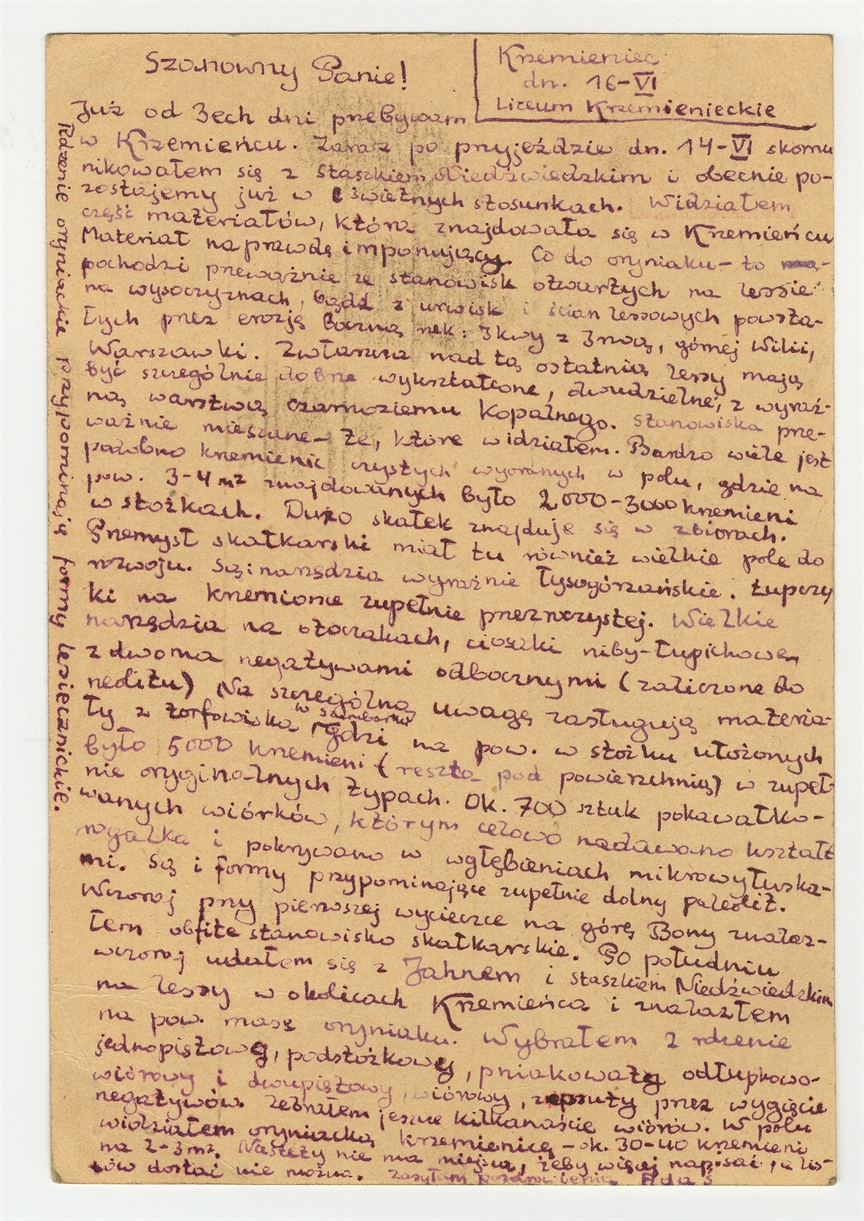 Szanowny Panie!
Krzemieniec
dn. 16-VI
Liceum Krzemienieckie
Już od 3ech dni przebywam
w Krzemieńcu. Zaraz po przyjeździe dn. 14-VI skomu
nikowałem się z Staszkiem Niedźwiedzkim i obecnie po-
zostajemy już w świetnych stosunkach. Widziałem
część materiałów, która znajdowała się w Krzemieńcu
Materiał naprawdę imponujący. Co do oryniaku - to
pochodzi przeważnie ze stanowisk otwartych na lessie
na wysoczyznach, bądź z urwisk i ścian lessowych powsta-
łych przez erozję boczną rzek: Ikwy z Irwą, górnej Wilii,
Warszawki. Zwłaszcza nad tą ostatnią lessy mają
być szczególnie dobrze wykształcone, dwudzielne, z wyraź-
ną warstwą czarnoziemu kopalnego. Stanowiska prze-
ważnie mieszane - te, które widziałem. Bardzo wiele jest
podobno krzemienic czystych wyoranych w polu, gdzie na
pow. 3-4 m² znajdowanych było 2000-3000 krzemieni
w stożkach. Dużo skałek znajduje się w zbiorach.
Przemysł skałkarski miał tu również wielkie pole do
rozwoju. Są: narzędzia wyraźnie łysogórzańskie. Łupczy
ki na krzemionce zupełnie przezroczystej. Wielkie
narzędzia na otoczakach, ciosaki niby-łupichowe
z dwoma negatywami odbocznymi (zaliczone do
neolitu) Na szczególną uwagę zasługują materia-
ły z torfowiska w Samborku gdzi na pow. w stożku ułożonych
było 5000 krzemieni (reszta pod powierzchnią) w zupeł
nie oryginalnych typach. Ok. 700 sztuk pokawałko-
wanych wiórków, którym celowo nadawano kształt
rogalka i pokrywano w wgłębieniach mikrowyłuska-
mi. Są i formy przypominające zupełnie dolny paleolit.
Wczoraj przy pierwszej wycieczce na górę Bony znalaz-
łem obfite stanowisko skałkarskie. Po południu
wczoraj udałem się z Jahnem i Staszkiem Niedźwiedzkim
na lessy w okolicach Krzemieńca i znalazłem
na pow. masę oryniaku. Wybrałem 2 rdzenie
jednopiętowy, podstożkowy, pniakowaty odłupkowo-
wiórowy i dwupiętowy wiórowy, zepsuty przez wygięcie
negatywów. Zebrałem jeszcze kilkanaście wiórów. W polu
widziałem oryniacką krzemienicę - ok. 30-40 krzemieni
na 2-3 m². Niestety nie ma miejsca, żeby więcej napisać, a lis-
tów dostać nie można. Zasyłam pozdrowienia Adaś
Rdzenie oryniackie przypominają formy lesiecznickie.